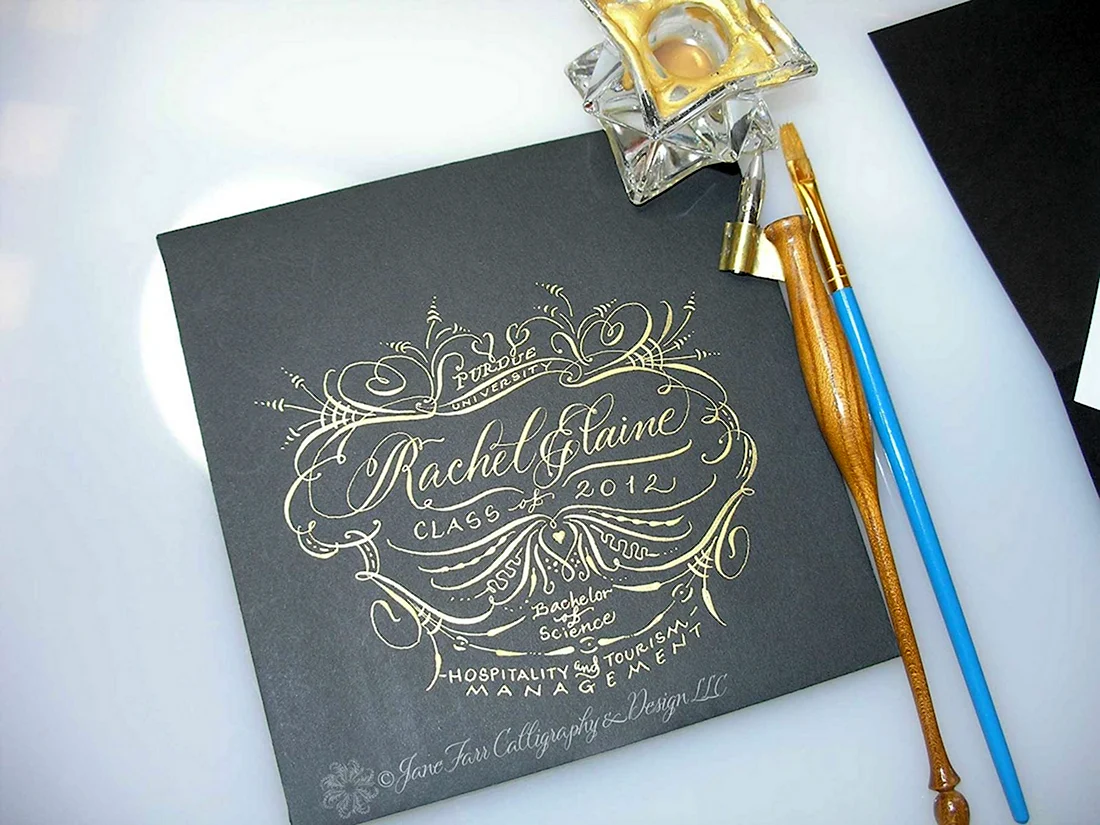 PURDUE
UNIVERSITY
Rachel Elaine
CLASS of 2012
Bachelor
of
Science
-HOSPITALITY and TOURISM
MANAGEMENT
© Jane Farr Calligraphy & Design LLC